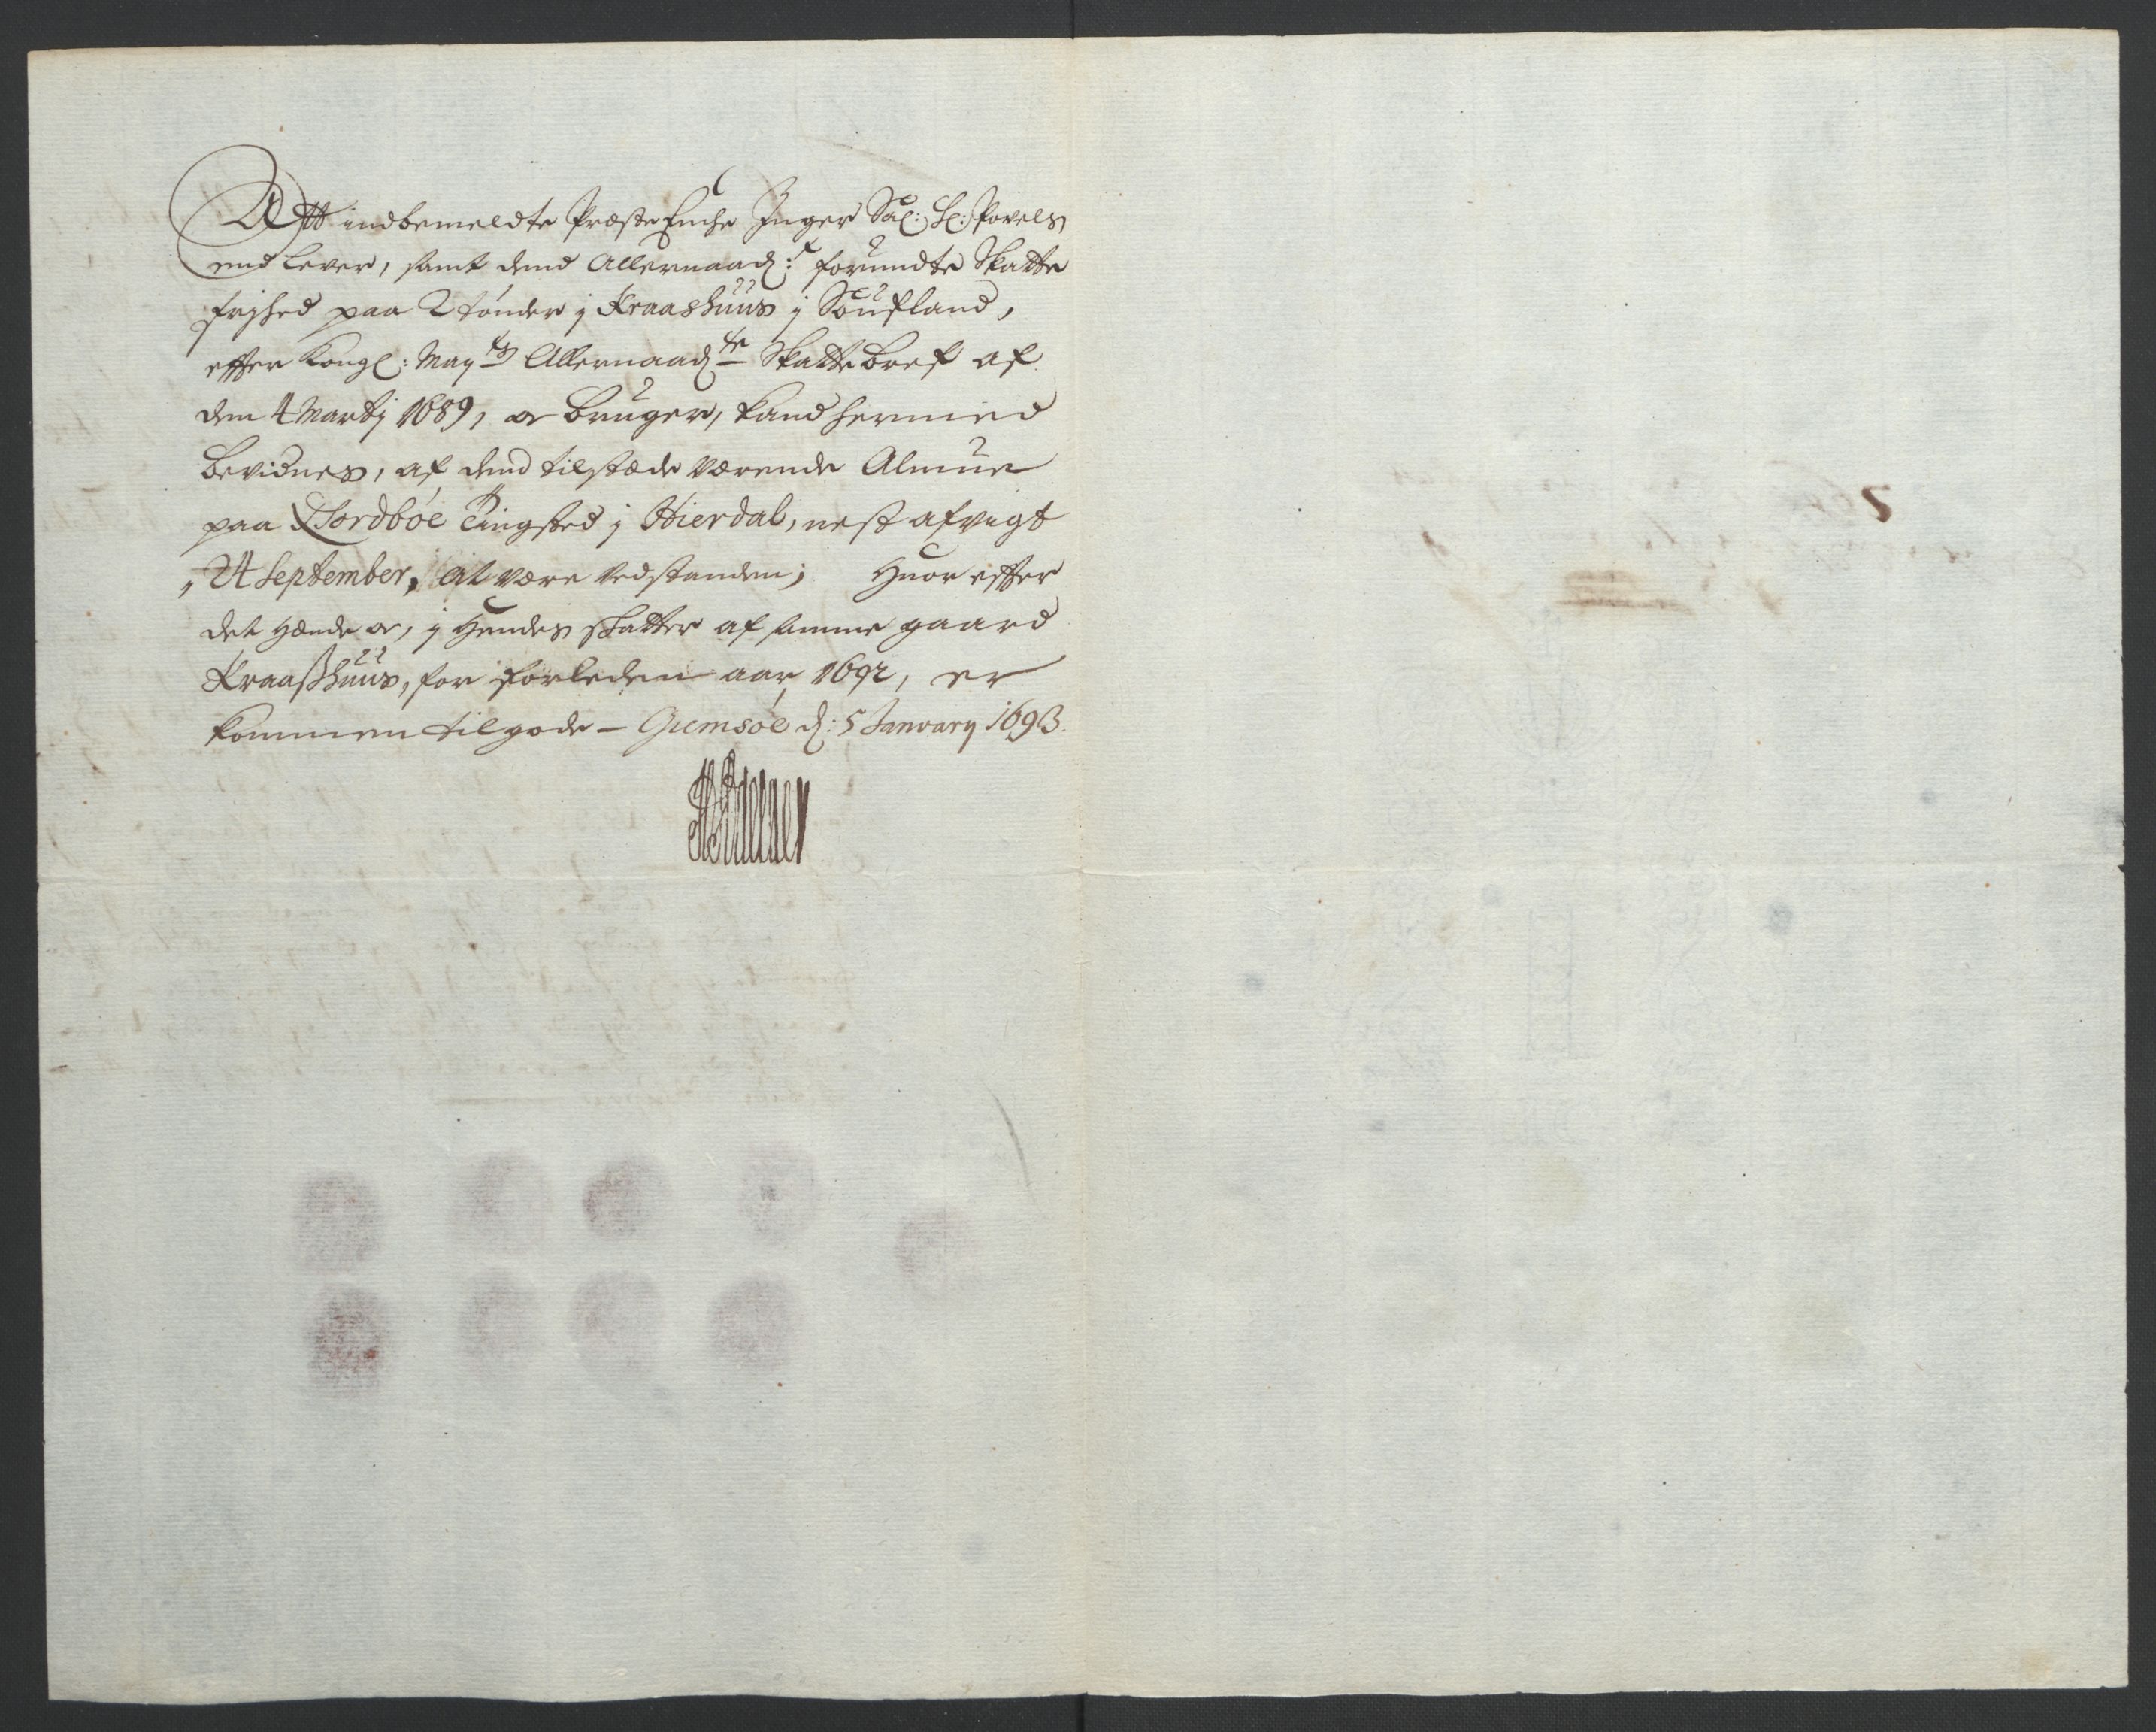 Att indbemeldte Præste Encke Inger Sal: H: Povels
end lever, samt dend Allernaad: forundte Skatte
frjhed paa 2 tønder j Kraashuus j Soufland,
effter Kongl: May ts Allernaad ste Skattebref af
dem 4 Martj 1689, er bruger, kand hermed
bevidnes, af dend tilstæde værende Almue
paa Nordbøe Tingsted j Hierdal, nest afvigt
24 September, at være vedstanden; Huor effter
det hænde er, j Hendes skatter af samme gaard
Kraasshuus, for forleden aar 1692, er
kommen tilgode - Gumsøe d: 5 January 1693.